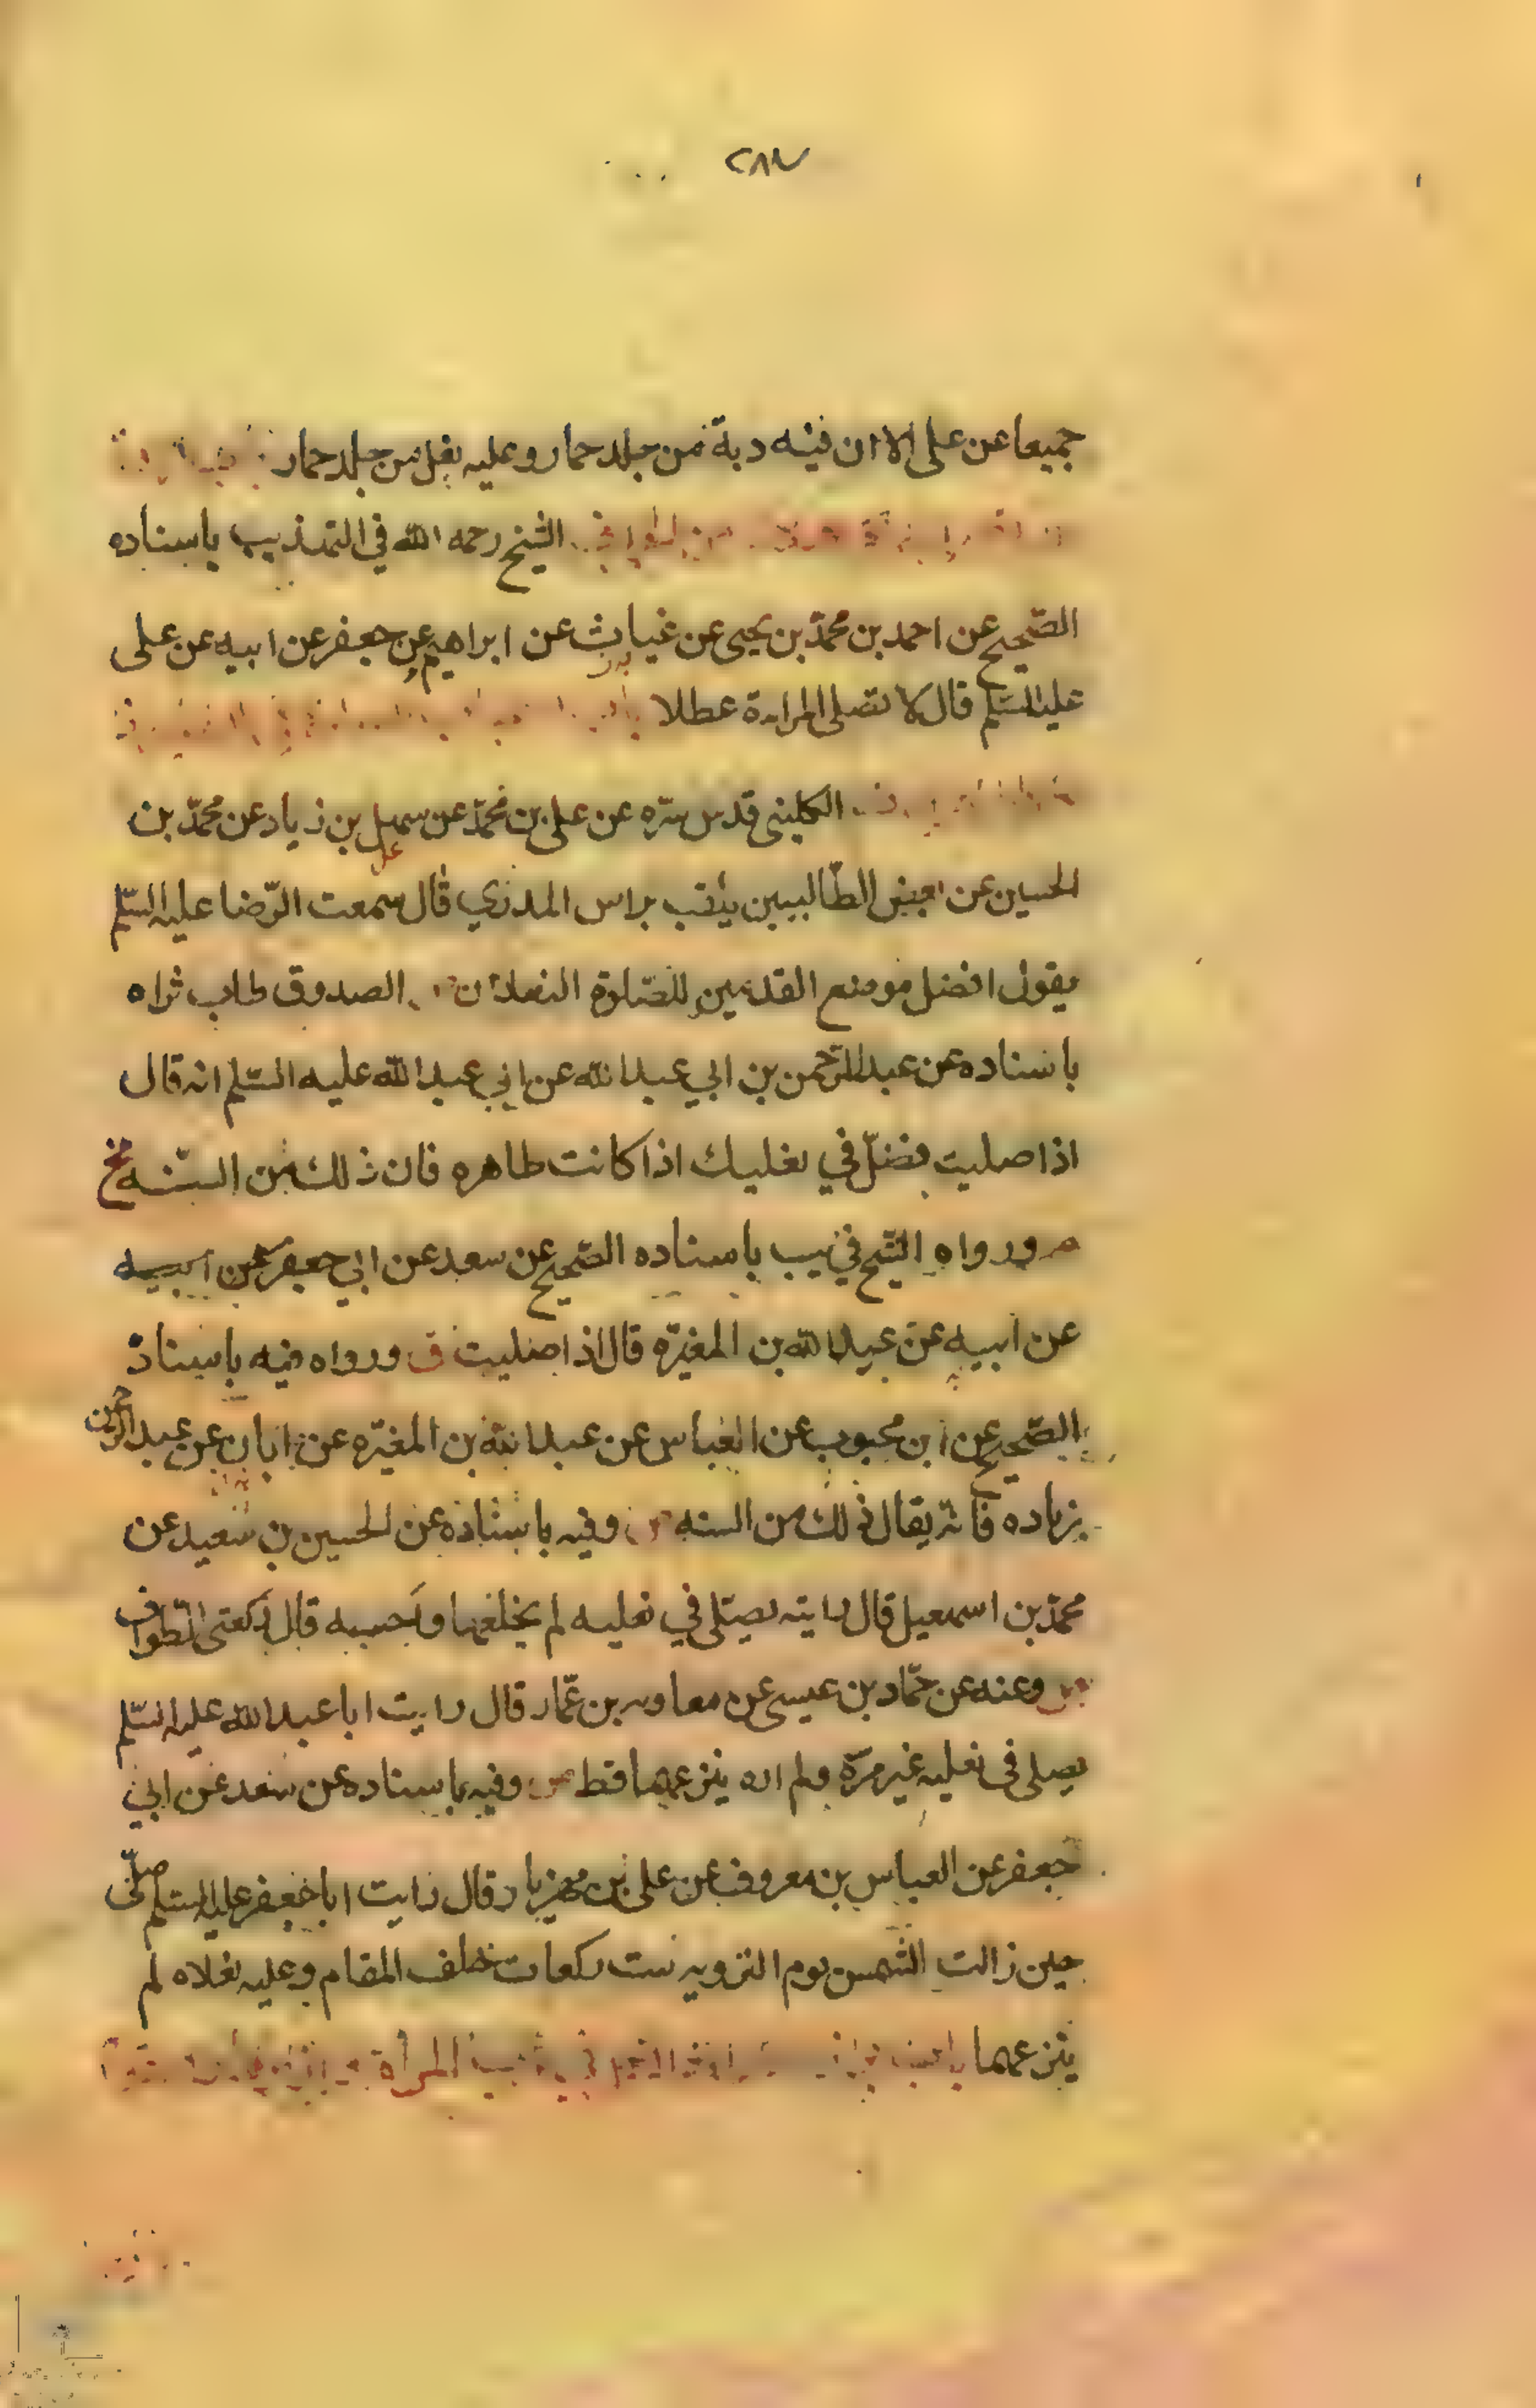 ٢٨٧
جميعا عن علي الا ان فيه دبة من جلد حمار وعليه نعل من جلد حمار
الشيخ رحمه الله في التهذيب باسناده
الصّحيح عن احمد بن محمّد بن يحيى عن غياث عن ابراهيم عن جعفر عن ابيه عن علي
عليه السّلم قال لا تصلي المراءة عطلا
الكليني قدس سّره عن علي بن محمّد عن سهل بن زياد عن محمّد بن
الحسين عن بعض الطّالبيين يلقب براس المدري قال سمعت الرّضا عليه السّلم
يقول افضل موضع القدمين للصّلوة النعلان الصدوق طاب ثراه
باسناده عن عبد الرّحمن بن ابي عبد الله عن ابي عبد الله عليه السّلم انه قال
اذا صليت فصلّ في نعليك اذا كانت طاهره فان ذلك من السّنه
ورواه الشّيخ في يب باسناده الصّحيح عن سعد عن ابي جعفر عن ابيه
عن ابيه عن عبد الله بن المغيّره قال اذا صليت ق ورواه فيه باسناد
الصّحيح عن ابن محبوب عن العباس عن عبد الله بن المغيّره عن ابان عن عبد الرحمن
بزياده فانّه يقال ذلك من السنه وفيه باسناده عن الحسين بن سعيد عن
محمّد بن اسمعيل قال رايته يصلّي في نعليه لم يخلعهما واحسبه قال ركعتي الطّواف
وعنه عن حمّاد بن عيسى عن معاويه بن عمّار قال رايت ابا عبد الله عليه السّلم
يصلي في نعليه غير مرّة ولم اره ينزعهما قط وفيه باسناده عن سعد عن ابي
جعفر عن العباس بن معروف عن علي بن مهزيار قال رايت ابا جعفر عليه السّلم صلّى
حين زالت الشّمس يوم الترويه ست ركعات خلف المقام وعليه نعلاه لم
ينزعهما